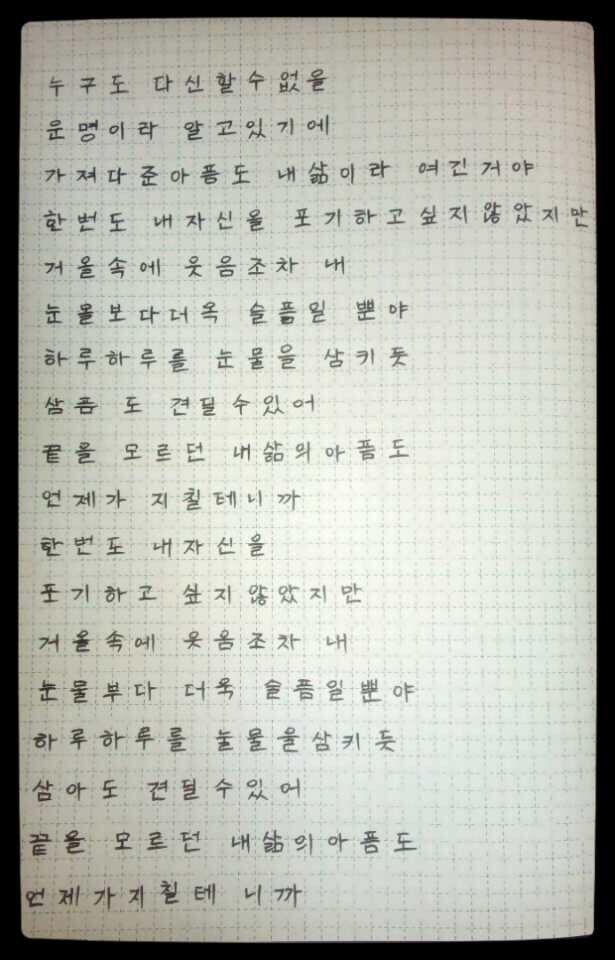 누구도 다신할수없을
운명이라 알고있기에
가져다준아픔도 내삶이라 여긴거야
한번도 내자신을 포기하고싶지않았지만
거울속에 웃음조차 내
눈물보다더욱 슬픔일 뿐야
하루하루를 눈물을 삼키듯
삼픔 도 견딜수있어
끝을 모르던 내삶의아픔도
언제가 지칠테니까
한번도 내자신을
포기하고 싶지않았지만
거울속에 웃음조차 내
눈물부다 더욱 슬픔일뿐야
하루하루를 눌물울삼키듯
삼아도 견딜수있어
끝을 모르던 내삶의아픔도
언제가지칠테 니까